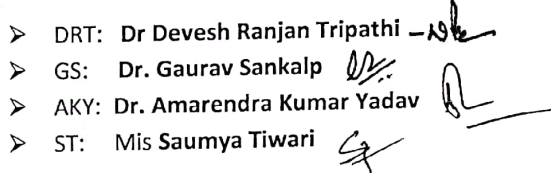 ➤ DRT: Dr Devesh Ranjan Tripathi –
➤ GS: Dr. Gaurav Sankalp
➤ AKY: Dr. Amarendra Kumar Yadav
➤ ST: Mis Saumya Tiwari